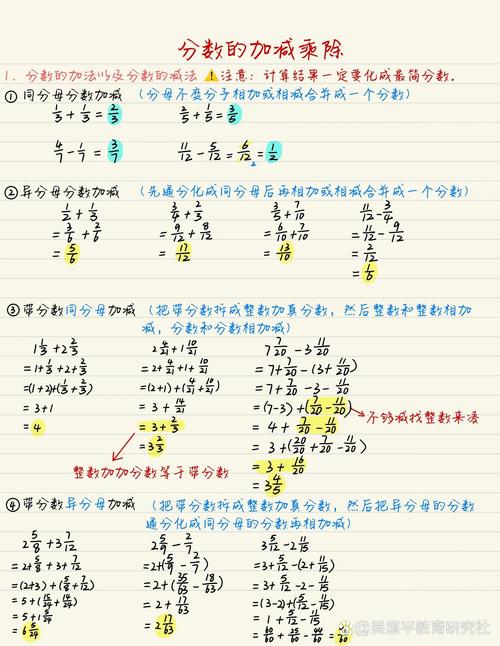 分数的加减乘除
1、分数的加法以及分数的减法 ⚠注意：计算结果一定要化成最简分数。
① 同分母分数加减 （分母不变分子相加或相减合并成一个分数）
1/3 + 1/3 = 2/3    2/5 + 1/5 = 3/5
4/7 - 1/7 = 3/7    11/12 - 5/12 = 6/12 = 1/2
2
② 异分母分数加减 （先通分化成同分母后再相加或相减合并成一个分数）
1/2 + 1/3    3/4 + 2/3    3/5 + 7/10    11/12 - 3/4
= 3/6 + 2/6    = 9/12 + 8/12    = 6/10 + 7/10    = 11/12 - 9/12
= 5/6    = 17/12    = 13/10    = 2/12
= 1/6
③ 带分数同分母加减 （把带分数拆成整数加真分数，然后整数和整数相加
减，分数和分数相加减）
1 1/3 + 2 2/3    2 4/21 + 1 10/21    7 7/20 - 3 11/20
= 1 + 1/3 + 2 + 2/3    = 2 + 4/21 + 1 + 10/21    = 7 + 7/20 - (3 + 11/20)
= (1+2) + (1/3 + 2/3)    = (2+1) + (4/21 + 10/21)    = 7 + 7/20 - 3 - 11/20
= 3 + 1    = 3 + 14/21    = (7-3) + (7/20 - 11/20)
= 4    = 3 + 2/3    = 4 + 7/20 - 11/20    不够减找整数来凑
3 2/3    = 3 + (20/20 + 7/20 - 11/20)
整数加加分数等于带分数    = 3 + 16/20
= 3 4/5
④ 带分数异分母加减 （把带分数拆成整数加真分数，然后把异分母的分数
通分化成同分母的分数再相加减）
2 5/8 + 3 7/12    2 5/9 - 2/7    3 5/12 - 2 11/15
= 2 + 5/8 + 3 + 7/12    = 2 + (5/9 - 2/7)    = 3 + 5/12 - (2 + 11/15)
= (2+3) + (5/8 + 7/12)    = 2 + (35/63 - 18/63)    = 3 + 5/12 - 2 - 11/15
= 5 + (15/24 + 14/24)    = 2 + 17/63    = (3-2) + (5/12 - 11/15)
= 5 + 1 5/24    = 2 17/63    = 1 + 5/12 - 11/15
= 6 5/24    = 60/60 + 25/60 - 44/60 =
@吴国平教育研究社